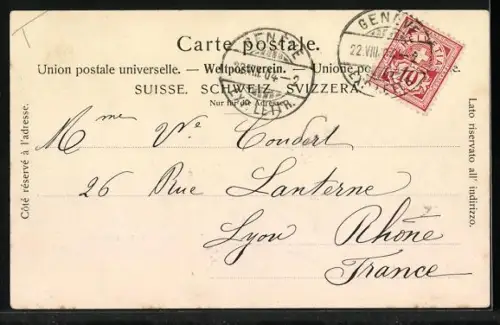 Carte postale.
Union postale universelle. — Weltpostverein. — Unione postale universale.
SUISSE. SCHWEIZ. SVIZZERA.
Nur für die Adresse.
GENÈVE
22.VIII.04 – 2
EXP. LETTR.
GENÈVE
22.VIII.
HELVETIA
10
Côté réservé à l'adresse.
Lato riservato all' indirizzo.
Mme Vve Coudert
26 Rue Lanterne
Lyon Rhône
France